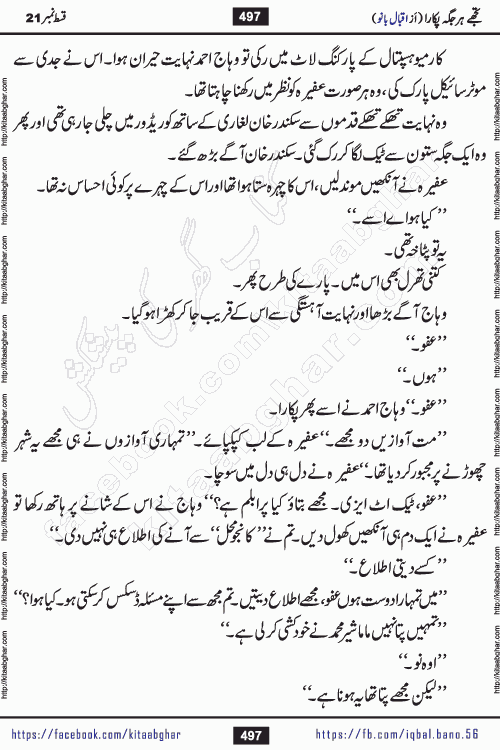 تجھے ہر جگہ پکارا (از اقبال بانو)
497
قسط نمبر 21
کار میو ہسپتال کے پارکنگ لاٹ میں رکی تو وہاج احمد نہایت حیران ہوا۔ اس نے جدی سے
موٹر سائیکل پارک کی، وہ ہر صورت عفیرہ کو نظر میں رکھنا چاہتا تھا۔
وہ نہایت تھکے تھکے قدموں سے سکندر خان لغاری کے ساتھ کوریڈور میں چلی جا رہی تھی اور پھر
وہ ایک جگہ ستون سے ٹیک لگا کر رک گئی۔ سکندر خان آگے بڑھ گئے۔
عفیرہ نے آنکھیں موند لیں، اس کا چہرہ ستا ہوا تھا اور اس کے چہرے پر کوئی احساس نہ تھا۔
’’کیا ہوا اے اسے۔‘‘
یہ تو پٹاخہ تھی۔
کتنی تھرل بھی اس میں۔ پارے کی طرح پھر۔
وہاج آگے بڑھا اور نہایت آہستگی سے اس کے قریب جا کر کھڑا ہو گیا۔
’’عفو۔‘‘
’’ہوں۔‘‘
’’عفو۔‘‘ وہاج احمد نے اسے پھر پکارا۔
’’مت آوازیں دو مجھے۔‘‘ عفیرہ کے لب کپکپائے۔ ’’تمہاری آوازوں نے ہی مجھے یہ شہر
چھوڑنے پر مجبور کر دیا تھا۔‘‘ عفیرہ نے دل ہی دل میں سوچا۔
’’عفو، ٹیک اٹ ایزی۔ مجھے بتاؤ کیا پرابلم ہے؟‘‘ وہاج نے اس کے شانے پر ہاتھ رکھا تو
عفیرہ نے ایک دم ہی آنکھیں کھول دیں۔ تم نے ’’کانجو محل‘‘ سے آنے کی اطلاع ہی نہیں دی۔‘‘
’’کسے دیتی اطلاع۔‘‘
’’میں تمہارا دوست ہوں عفو، مجھے اطلاع دیتیں۔ تم مجھ سے اپنے مسئلہ ڈسکس کر سکتی ہو۔ کیا ہوا؟‘‘
’’تمہیں پتا نہیں ماما شیر محمد نے خودکشی کر لی ہے۔‘‘
’’اوہ نو۔‘‘
’’لیکن مجھے پتا تھا یہ ہونا ہے۔‘‘
https://facebook.com/kitaabghar
497
https://fb.com/iqbal.bano.56
http://kitaabghar.com
کتاب گھر کی پیشکش
facebook.com/kitaabghar
kitaabghar.com